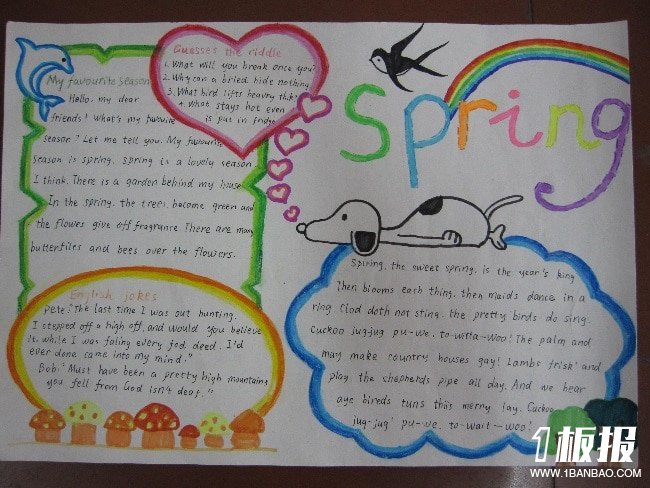 My favourite season
Hello, my dear
friends! What's my favourite
season? Let me tell you. My favourite
season is spring. Spring is a lovely season
I think. There is a garden behind my house
In the spring, the trees become green and
the flowes give off fragrance. There are many
butterflies and bees over the flowers.
Guesses the riddle
1. What will you break once you
2. Why can a bried hide nothing
3. What bird lifts heavry
4. What stays hot even
is put in fridge
Spring
English jokes
Pete: "The last time I was out hunting,
I stepped off a high off, and would you believe
it, while I was faling every god deed, I'd
ever done came into my mind."
Bob: "Must have been a pretty high mountaing
you fell from God isn't deap."
Spiring, the sweet spring, is the year's king
Then blooms each thing, then maids dance in a
ring Clod doth not sting, the pretty birds do sing.
Cuckoo jug-jug pu-we, to-witta-woo! The palm and
may make country houses gay! Lambs frisk and
play the shepherds pipe all day, And we hear
aye bireds tuns this merry lay, Cuckoo
jug-jug! pu-we, to-wait-woo!
1板报
WWW.1BANBAO.COM